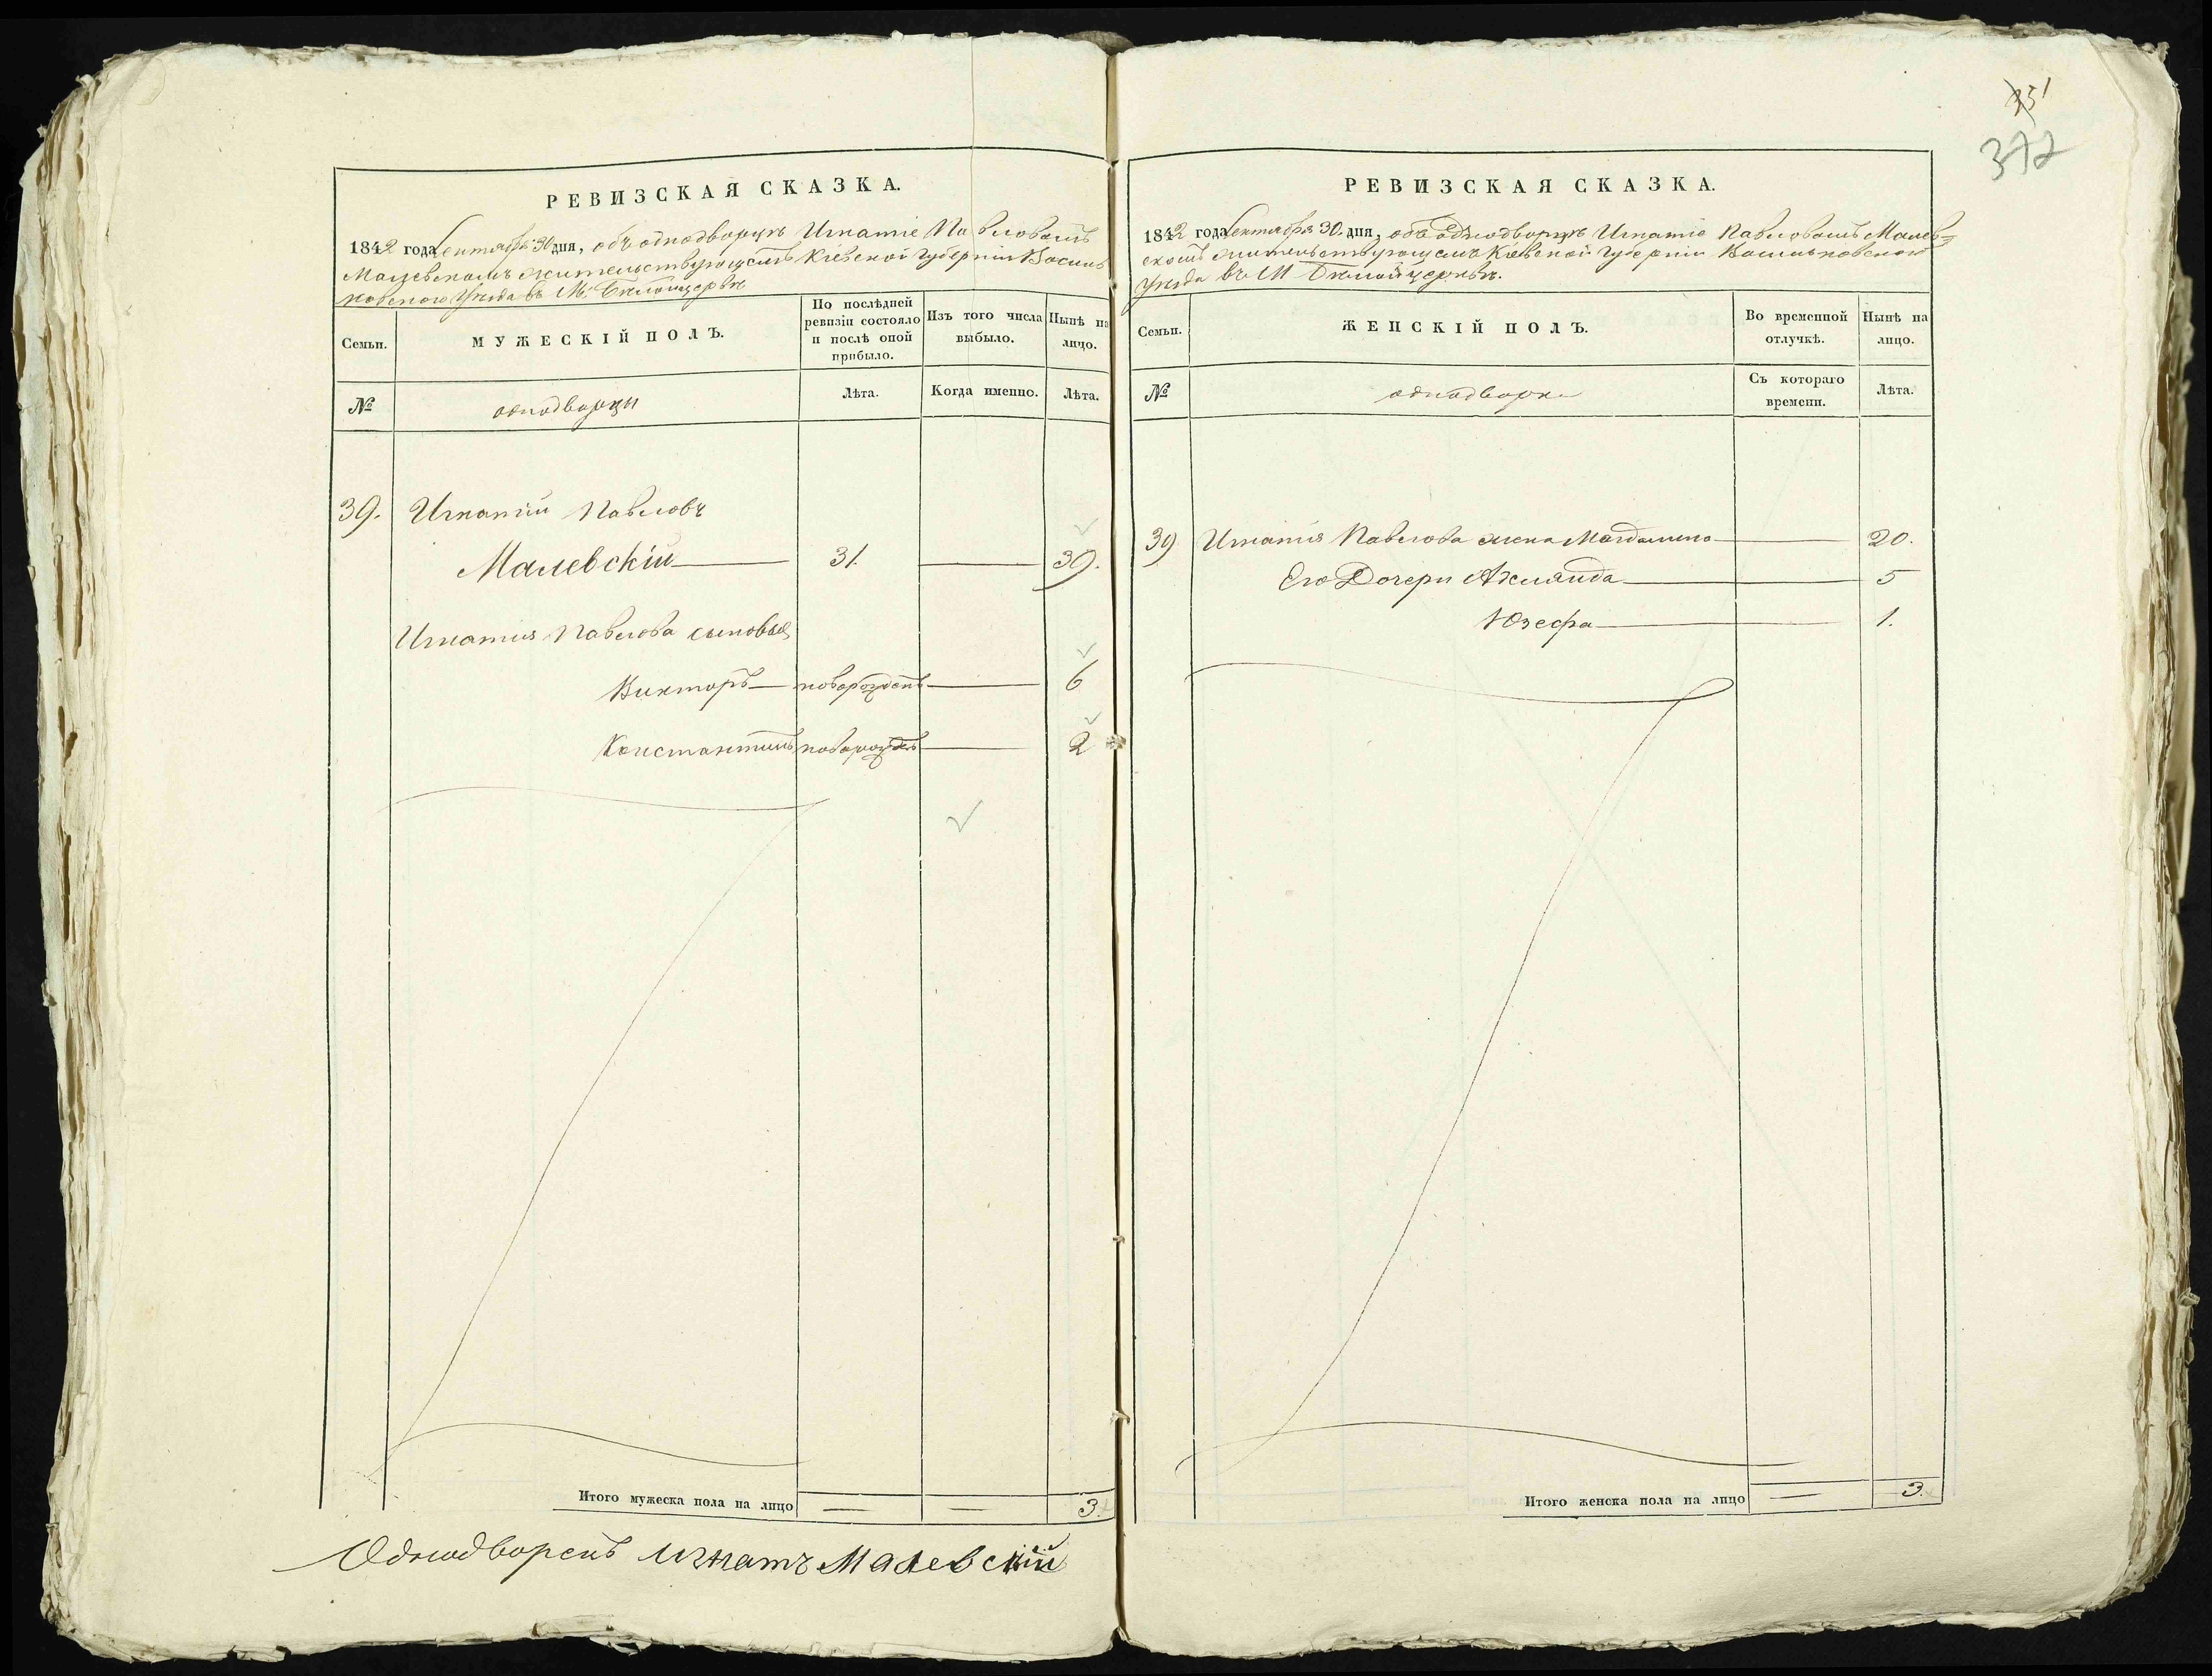 351
372
РЕВИЗСКАЯ СКАЗКА.
1842 года Сентября 30 дня, объ однодворцѣ Игнатіе Павловомъ
Малевскомъ жительствующемъ Кіевской Губерніи Василь
ковского Уѣзда въ М: Бѣлойцерквѣ
Семьи.
МУЖЕСКІЙ ПОЛЪ.
По послѣдней
ревизіи состояло
и послѣ оной
прибыло.
Изъ того числа
выбыло.
Нынѣ на
лицо.
№
однодворцы
Лѣта.
Когда именно.
Лѣта.
39. Игнатій Павловъ
Малевскій 31. 39.
Игнатия Павлова сыновья
Викторъ новорожденъ 6
Константинъ новорожденъ 2
Итого мужеска пола на лицо 3.
Однодворецъ Игнатъ Малевскій
РЕВИЗСКАЯ СКАЗКА.
1842 года Сентября 30. дня, объ однодворцѣ Игнатіе Павловомъ Малев=
скомъ жительствующемъ Кіевской Губерніи Васильковского
Уѣзда въ М Бѣлойцерквѣ.
Семьи.
ЖЕНСКІЙ ПОЛЪ.
Во временной
отлучкѣ.
Нынѣ на
лицо.
№
однодворки
Съ котораго
времени.
Лѣта.
39 Игнатия Павлова жена Магдалина 20.
Его Дочери 5
Юзефа 1.
Итого женска пола на лицо 3.